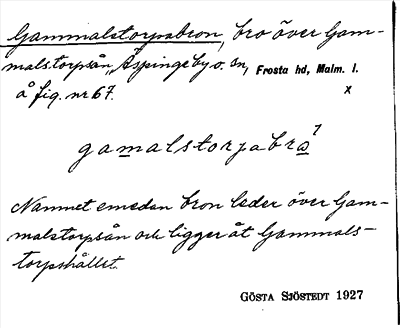 Gammalstorpabron, bro över Gam-
malstorpsån, Äspinge by o. sn, Frosta hd, Malm. l.
å fig. nr 67. x
gamalstorpabra⁷
Namnet emedan bron leder över Gam-
malstorpsån och ligger åt Gammals-
torpshållet.
GÖSTA SJÖSTEDT 1927